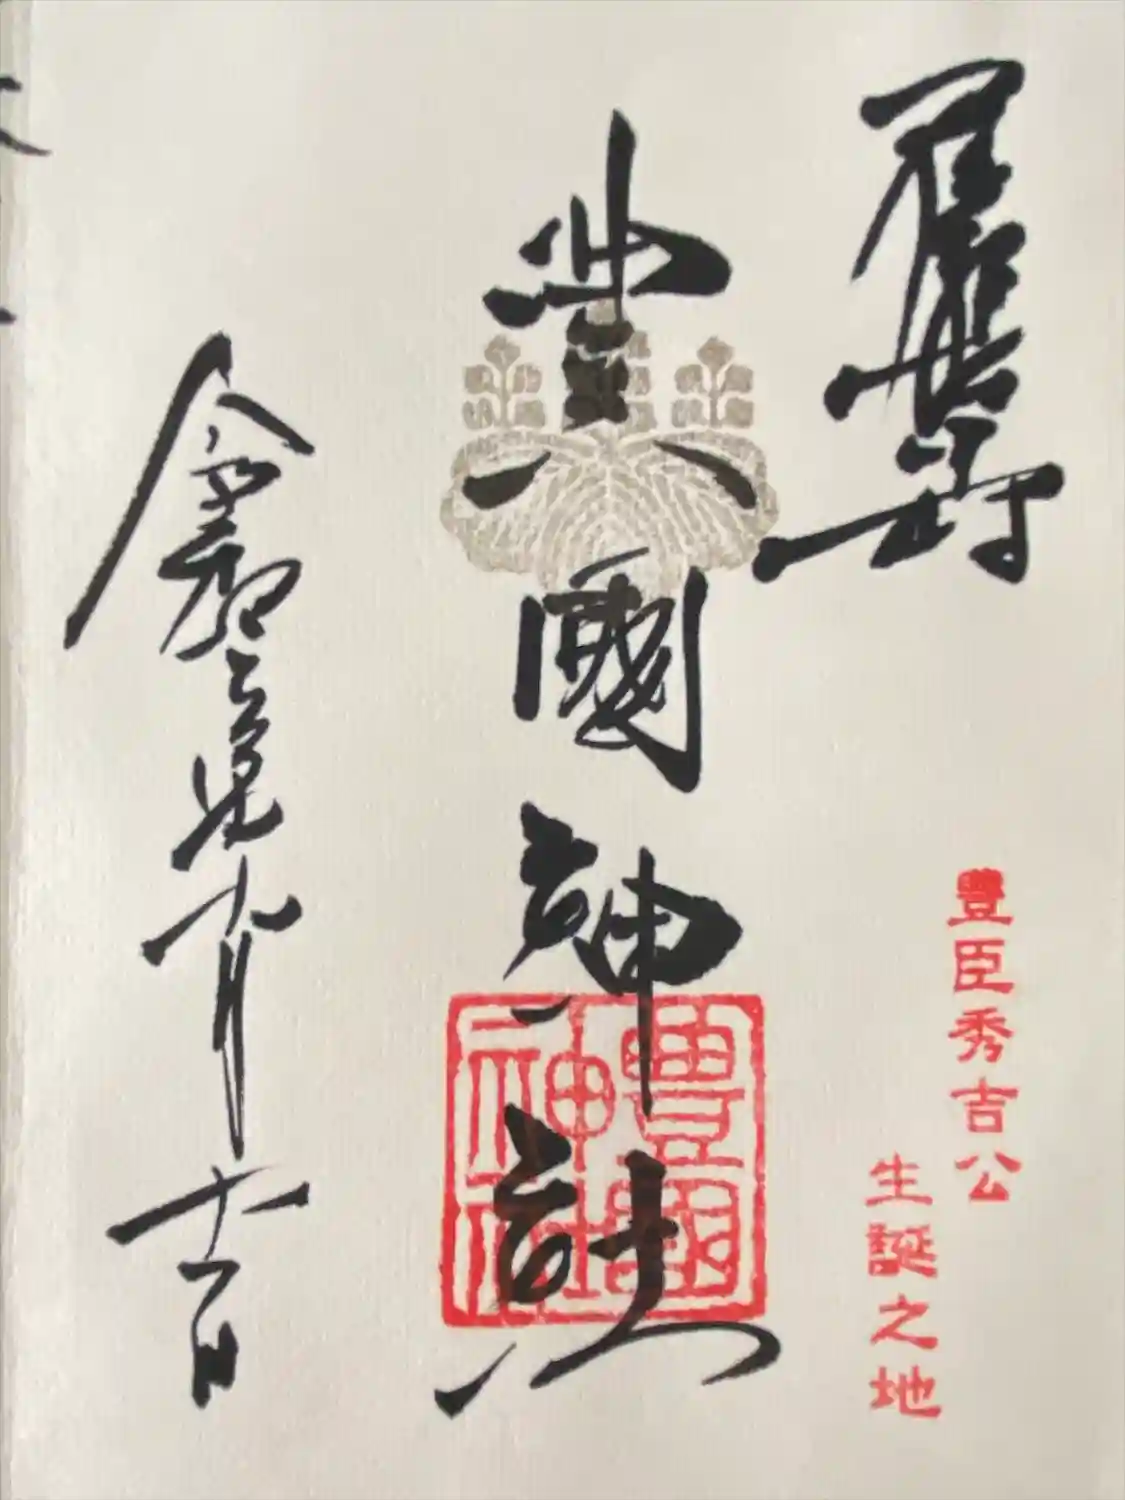 豊臣秀吉公
生誕之地
豊國神社
豊國神社
令和三年九月十一日